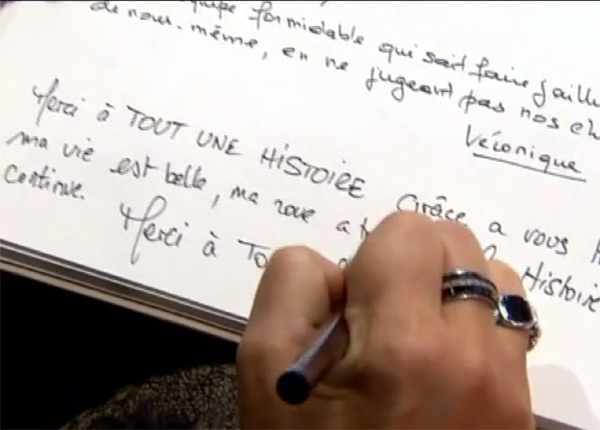 équipe formidable qui sait faire jaillir
de nous-même, en ne jugeant pas nos ch
Véronique
Merci à TOUT UNE HISTOIRE Grâce a vous
ma vie est belle, ma roue a Histoire
continue. Merci à TO